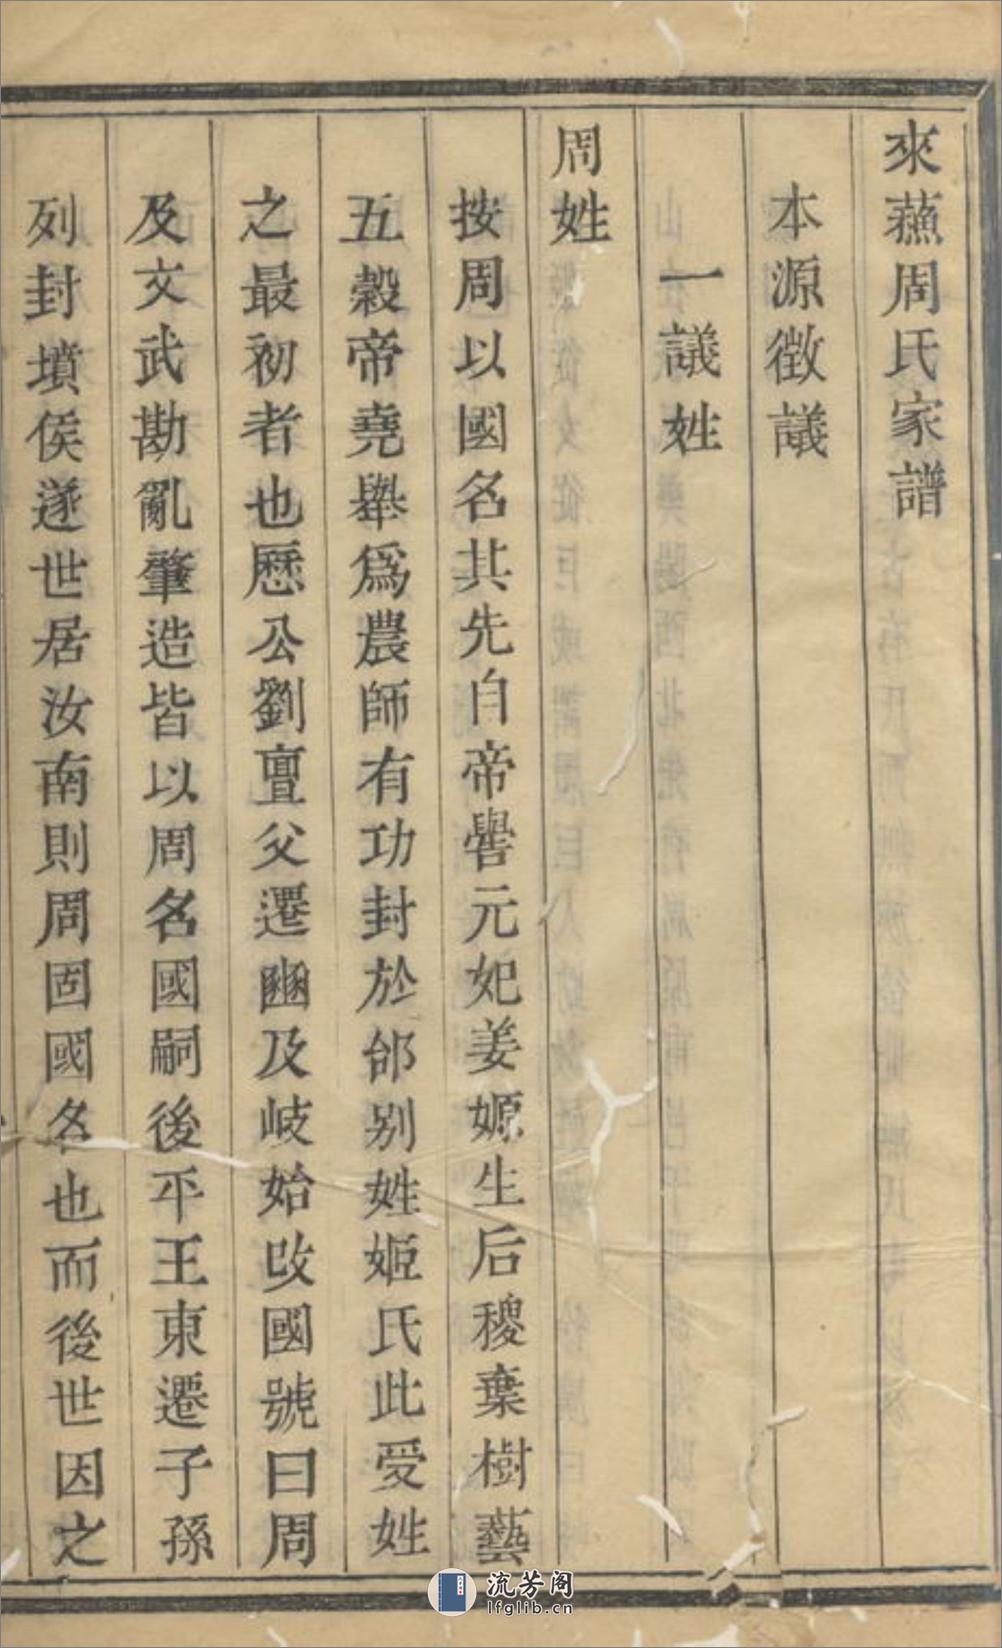 來蕪周氏家譜
本源徵議
一議姓
周姓
按周以國名其先自帝嚳元妃姜嫄生后稷棄樹藝
五穀帝堯舉爲農師有功封於邰别姓姬氏此受姓
之最初者也歷公劉亶父遷豳及岐始改國號曰周
及文武勘亂肇造皆以周名國嗣後平王東遷子孫
列封墳侯遂世居汝南則周固國名也而後世因之
流芳阁
lfglib.cn